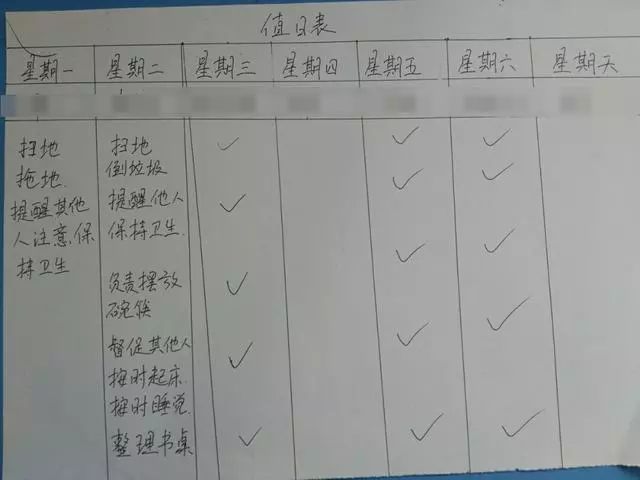 值日表
星期一 星期二 星期三 星期四 星期五 星期六 星期天
扫地
拖地.
提醒其他
人注意,保
持卫生
扫地
倒垃圾
提醒他人
保持卫生.
负责摆放
碗筷
督促其他人
按时起床.
按时睡觉.
整理书桌